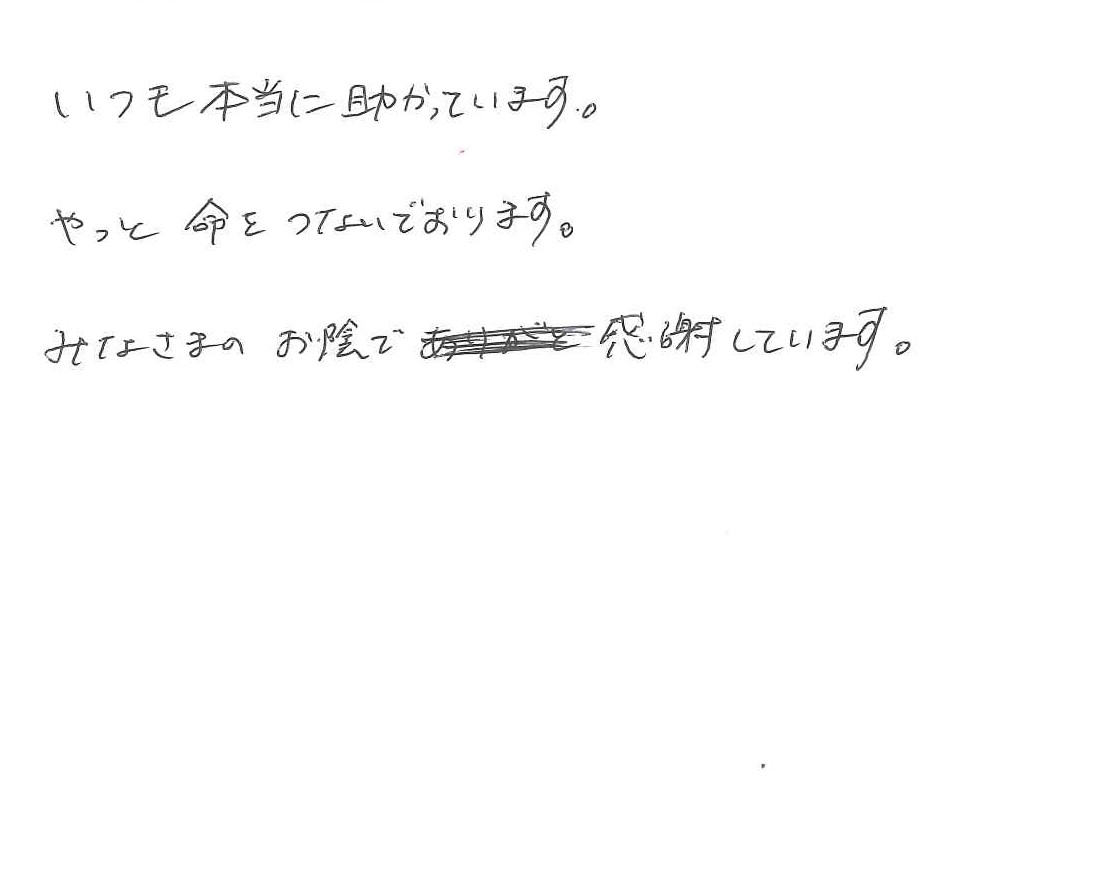 いつも本当に助かっています。
やっと命をつないでおります。
みなさまのお陰で感謝しています。